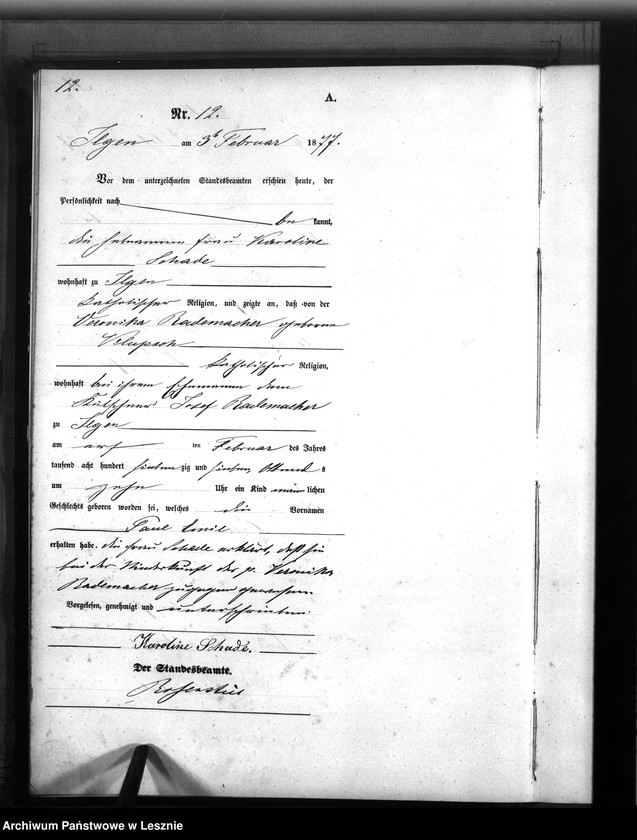 12.
A.
Nr. 12.
Ilgen am 3t Februar 1877.
Vor dem unterzeichneten Standesbeamten erschien heute, der
Persönlichkeit nach
be kannt,
die Frau Karoline
Schade
wohnhaft zu Ilgen
katholischer Religion, und zeigte an, daß von der
Veronika Rademacher geborene
katholischer Religion,
wohnhaft bei ihrem Ehemanne dem
Kutschner Josef Rademacher
zu Ilgen
am ersten Februar des Jahres
tausend acht hundert siebenzig und sieben
um zehn Uhr ein Kind männlichen
Geschlechts geboren worden sei, welches die Vornamen
Paul Emil
erhalten habe. die Frau Schade erklärt, daß sie
bei der Niederkunft der p. Veronika
Rademacher zugegen gewesen.
Vorgelesen, genehmigt und unterschrieben.
Karoline Schade.
Der Standesbeamte.
Archiwum Państwowe w Lesznie